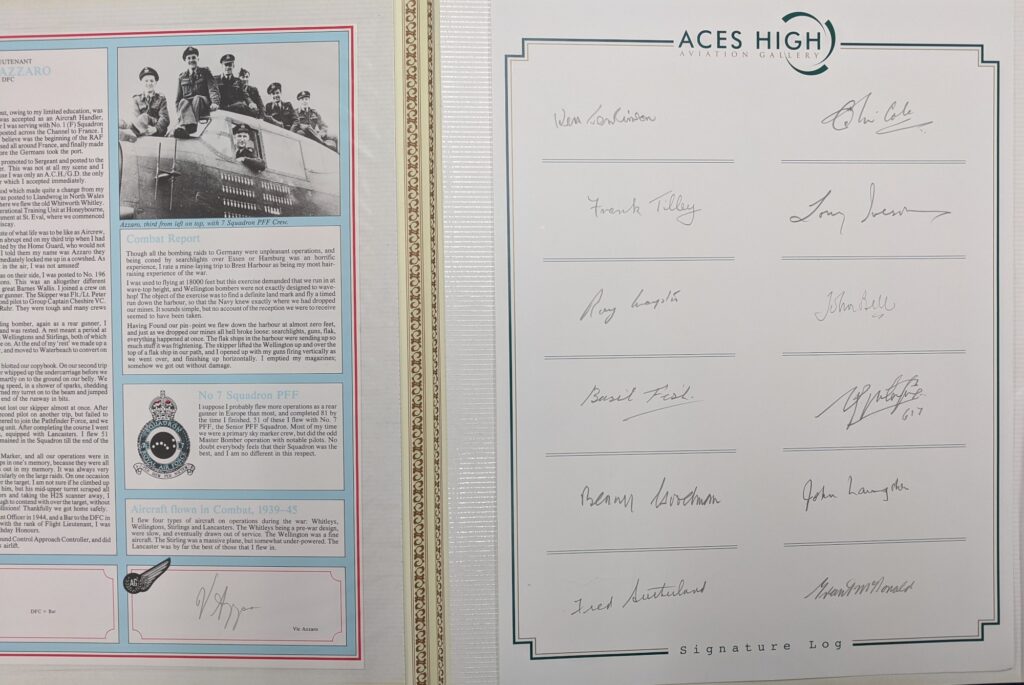 EUTENANT
AZZARO
DFC
out, owing to my limited education, was
was accepted as an Aircraft Handler,
r I was serving with No. 1 (F) Squadron
posted across the Channel to France. I
believe was the beginning of the RAF
sed all around France, and finally made
ore the Germans took the port.
promoted to Sergeant and posted to the
er. This was not at all my scene and I
se I was only an A.C.H./G.D. the only
r which I accepted immediately.
nd which made quite a change from my
was posted to Llandwrog in North Wales
here we flew the old Whitworth Whitley.
erational Training Unit at Honeybourne,
ment at St. Eval, where we commenced
iscay.
use of what life was to be like as Aircrew,
n abrupt end on my third trip when I had
ted by the Home Guard, who would not
I told them my name was Azzaro they
mediately locked me up in a cowshed. As
in the air, I was not amused!
as on their side, I was posted to No. 196
ons. This was an altogether different
great Barnes Wallis. I joined a crew on
r gunner. The Skipper was Flt./Lt. Peter
ond pilot to Group Captain Cheshire VC.
Ruhr. They were tough and many crews
ding bomber, again as a rear gunner, I
and was rested. A rest meant a period at
Wellingtons and Stirlings, both of which
e on. At the end of my 'rest' we made up a
, and moved to Waterbeach to convert on
blotted our copybook. On our second trip
r whipped up the undercarriage before we
martly on to the ground on our belly. We
ng speed, in a shower of sparks, shedding
rned my turret on to the beam and jumped
end of the runway in bits.
out lost our skipper almost at once. After
econd pilot on another trip, but failed to
eered to join the Pathfinder Force, and we
ng unit. After completing the course I went
, equipped with Lancasters. I flew 51
mained in the Squadron till the end of the
Marker, and all our operations were in
ps in one's memory, because they were all
out in my memory. It was always very
cularly on the large raids. On one occasion
er the target. I am not sure if he climbed up
him, but his mid-upper turret scraped all
ors and taking the H2S scanner away, I
ugh to contend with over the target, without
ollisions! Thankfully we got home safely.
nt Officer in 1944, and a Bar to the DFC in
with the rank of Flight Lieutenant, I was
hday Honours.
ound Control Approach Controller, and did
airlift.
DFC + Bar
Azzaro, third from left on top, with 7 Squadron PFF Crew.
Combat Report
Though all the bombing raids to Germany were unpleasant operations, and
being coned by searchlights over Essen or Hamburg was an horrific
experience, I rate a mine-laying trip to Brest Harbour as being my most hair-
raising experience of the war.
I was used to flying at 18000 feet but this exercise demanded that we run in at
wave-top height, and Wellington bombers were not exactly designed to wave-
hop! The object of the exercise was to find a definite land mark and fly a timed
run down the harbour, so that the Navy knew exactly where we had dropped
our mines. It sounds simple, but no account of the reception we were to receive
seemed to have been taken.
Having Found our pin-point we flew down the harbour at almost zero feet,
and just as we dropped our mines all hell broke loose: searchlights, guns, flak,
everything happened at once. The flak ships in the harbour were sending up so
much stuff it was frightening. The skipper lifted the Wellington up and over the
top of a flak ship in our path, and I opened up with my guns firing vertically as
we went over, and finishing up horizontally. I emptied my magazines;
somehow we got out without damage.
No 7 Squadron PFF
I suppose I probably flew more operations as a rear
gunner in Europe than most, and completed 81 by
the time I finished. 51 of these I flew with No. 7
PFF, the Senior PFF Squadron. Most of my time
we were a primary sky marker crew, but did the odd
Master Bomber operation with notable pilots. No
doubt everybody feels that their Squadron was the
best, and I am no different in this respect.
SQUADRON
ROYAL AIR FORCE
Aircraft flown in Combat, 1939–45
I flew four types of aircraft on operations during the war: Whitleys,
Wellingtons, Stirlings and Lancasters. The Whitleys being a pre-war design,
were slow, and eventually drawn out of service. The Wellington was a fine
aircraft. The Stirling was a massive plane, but somewhat under-powered. The
Lancaster was by far the best of those that I flew in.
AG
V Azzaro
Vic Azzaro
ACES HIGH
AVIATION GALLERY
Ken
Colin Cole
Frank Tilley
Tony Iveson
John Bell
Basil Fish
617
Benny Goodman
John Langston
Fred Sutherland
Grant McDonald
Signature Log